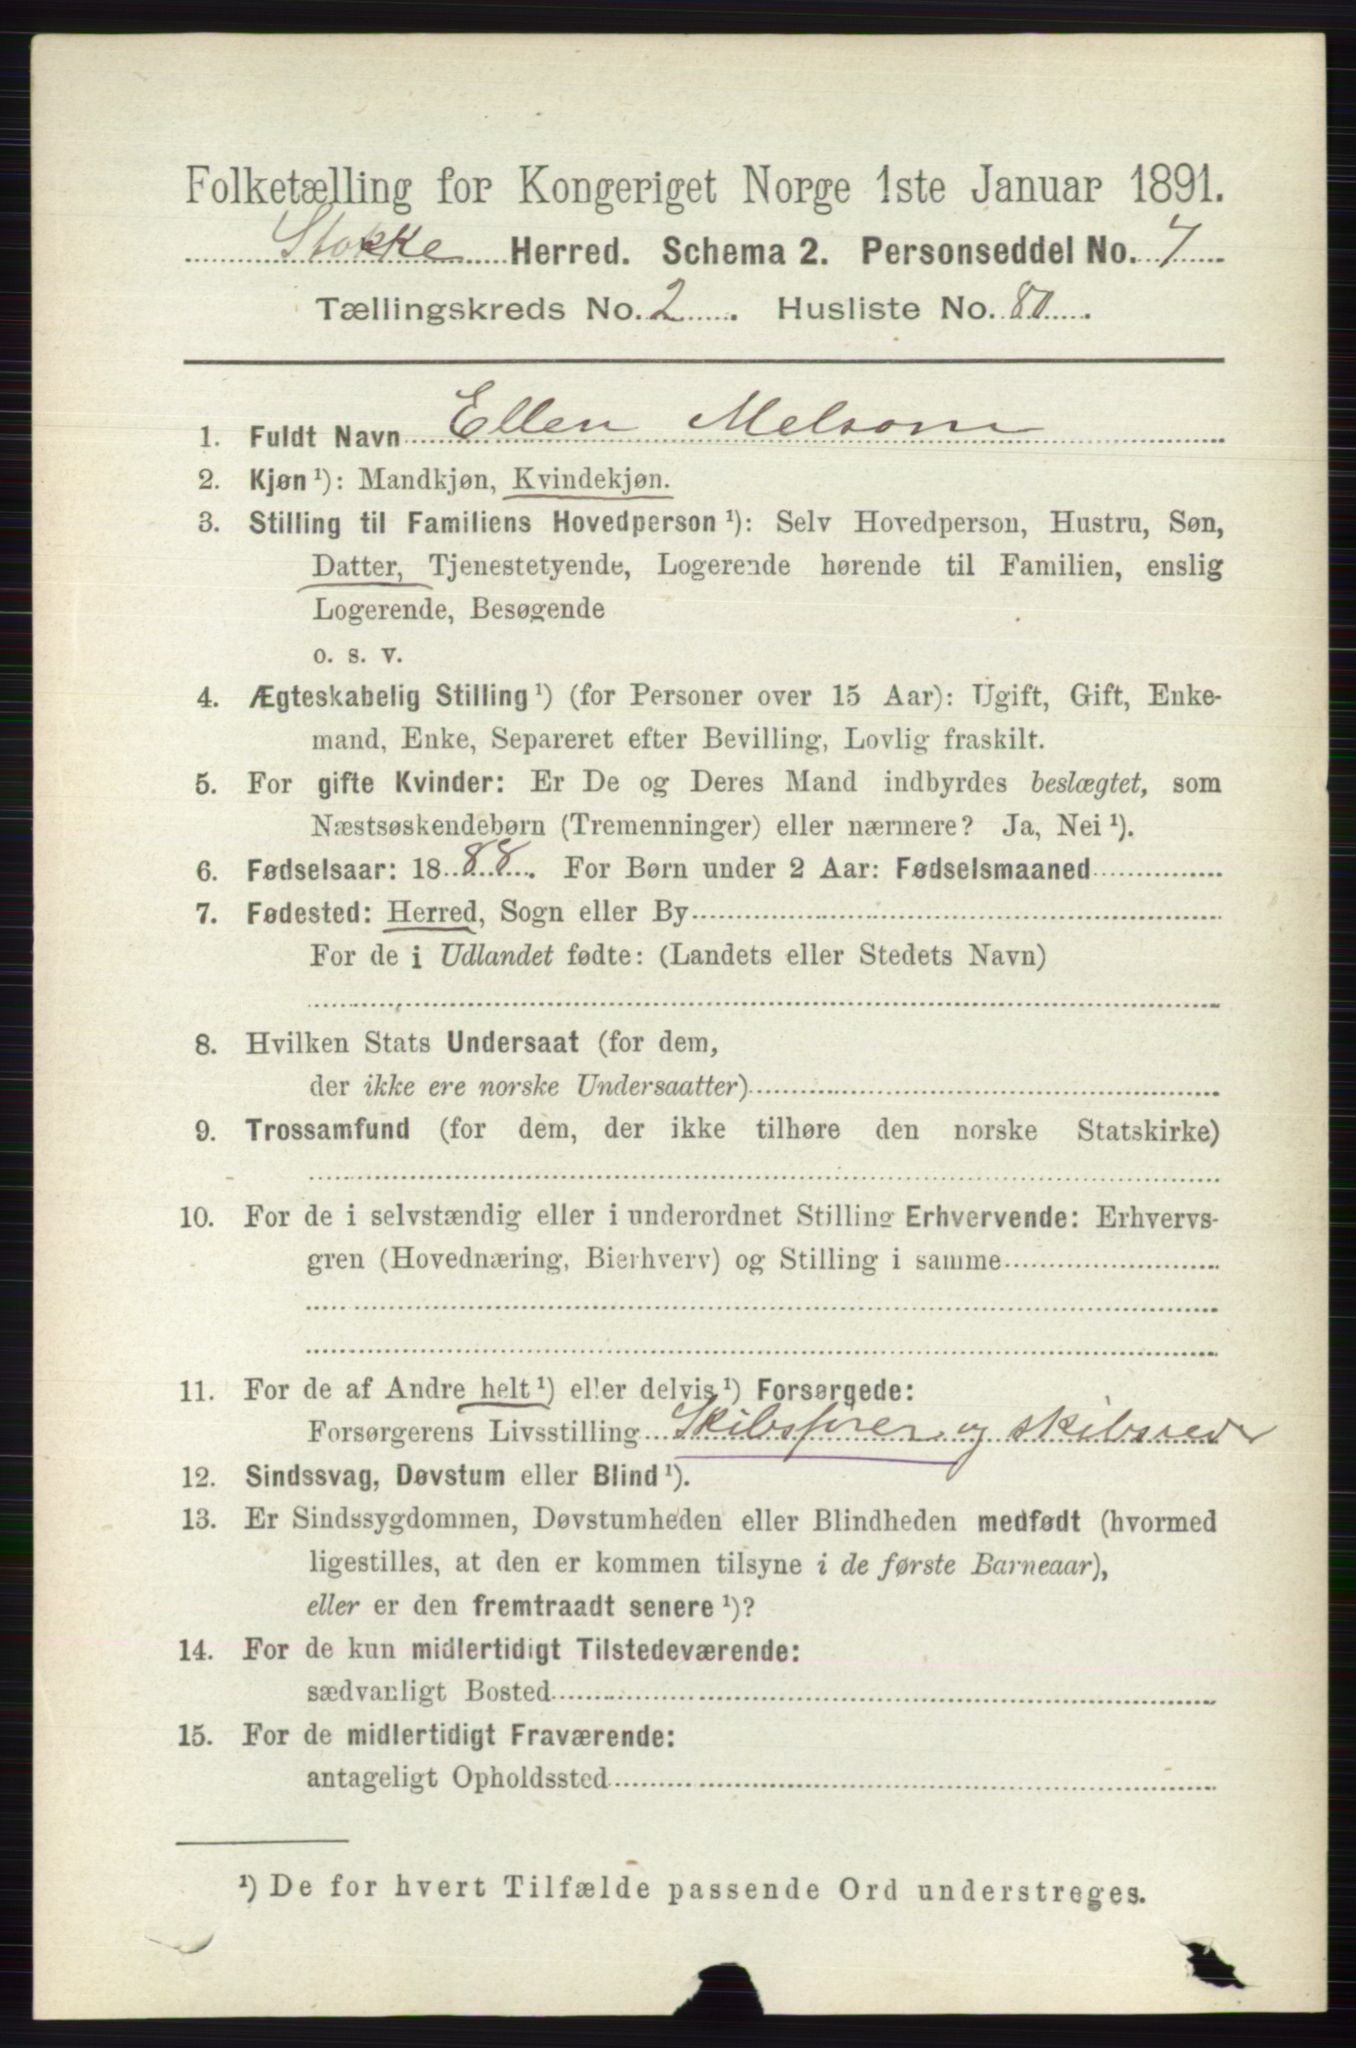 Folketælling for Kongeriget Norge 1ste Januar 1891.
Stokke Herred. Schema 2. Personseddel No. 7
Tællingskreds No. 2. Husliste No. 80.
1. Fuldt Navn Ellen Melsom
2. Kjøn ¹): Mandkjøn, Kvindekjøn.
3. Stilling til Familiens Hovedperson ¹): Selv Hovedperson, Hustru, Søn,
Datter, Tjenestetyende, Logerende hørende til Familien, enslig
Logerende, Besøgende
o. s. v.
4. Ægteskabelig Stilling ¹) (for Personer over 15 Aar): Ugift, Gift, Enke-
mand, Enke, Separeret efter Bevilling, Lovlig fraskilt.
5. For gifte Kvinder: Er De og Deres Mand indbyrdes beslægtet, som
Næstsøskendebørn (Tremenninger) eller nærmere? Ja, Nei ¹).
6. Fødselsaar: 1888. For Børn under 2 Aar: Fødselsmaaned
7. Fødested: Herred, Sogn eller By
For de i Udlandet fødte: (Landets eller Stedets Navn)
8. Hvilken Stats Undersaat (for dem,
der ikke ere norske Undersaatter)
9. Trossamfund (for dem, der ikke tilhøre den norske Statskirke)
10. For de i selvstændig eller i underordnet Stilling Erhvervende: Erhvervs-
gren (Hovednæring, Bierhverv) og Stilling i samme
11. For de af Andre helt ¹) eller delvis ¹) Forsørgede:
Forsørgerens Livsstilling Skibsfører og skibsred
12. Sindssvag, Døvstum eller Blind ¹).
13. Er Sindssygdommen, Døvstumheden eller Blindheden medfødt (hvormed
ligestilles, at den er kommen tilsyne i de første Barneaar),
eller er den fremtraadt senere ¹)?
14. For de kun midlertidigt Tilstedeværende:
sædvanligt Bosted
15. For de midlertidigt Fraværende:
antageligt Opholdssted
¹) De for hvert Tilfælde passende Ord understreges.